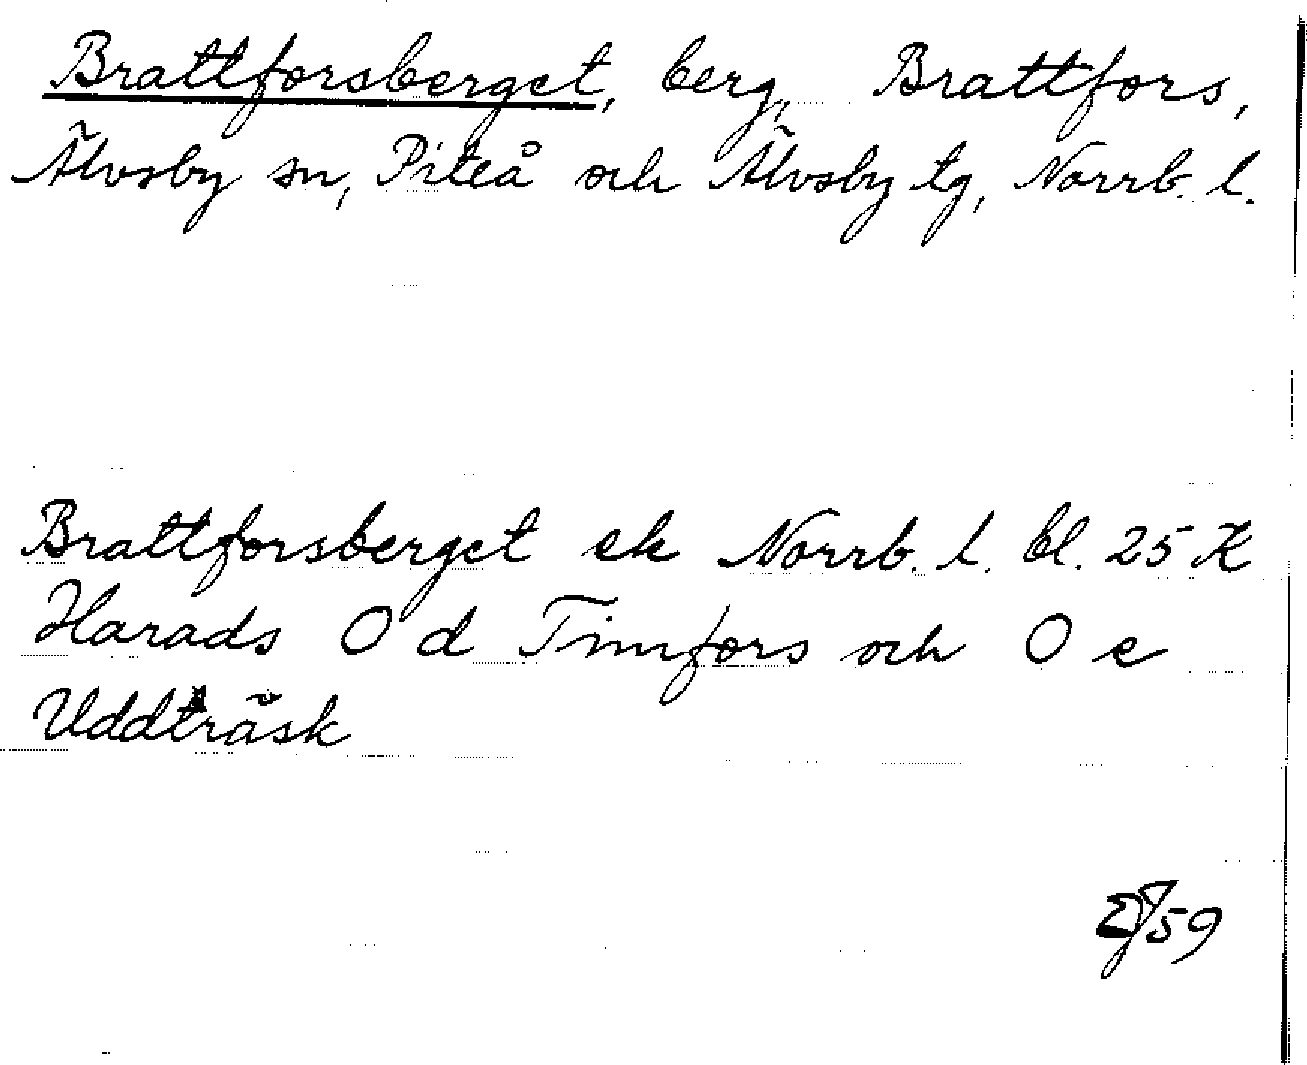 Brattforsberget, berg, Brattfors,
Älvsby sn, Piteå och Älvsby tg, Norrb. l.
Brattforsberget ek Norrb. l. bl. 25 K
Harads O d Timfors och O e
Uddträsk
59